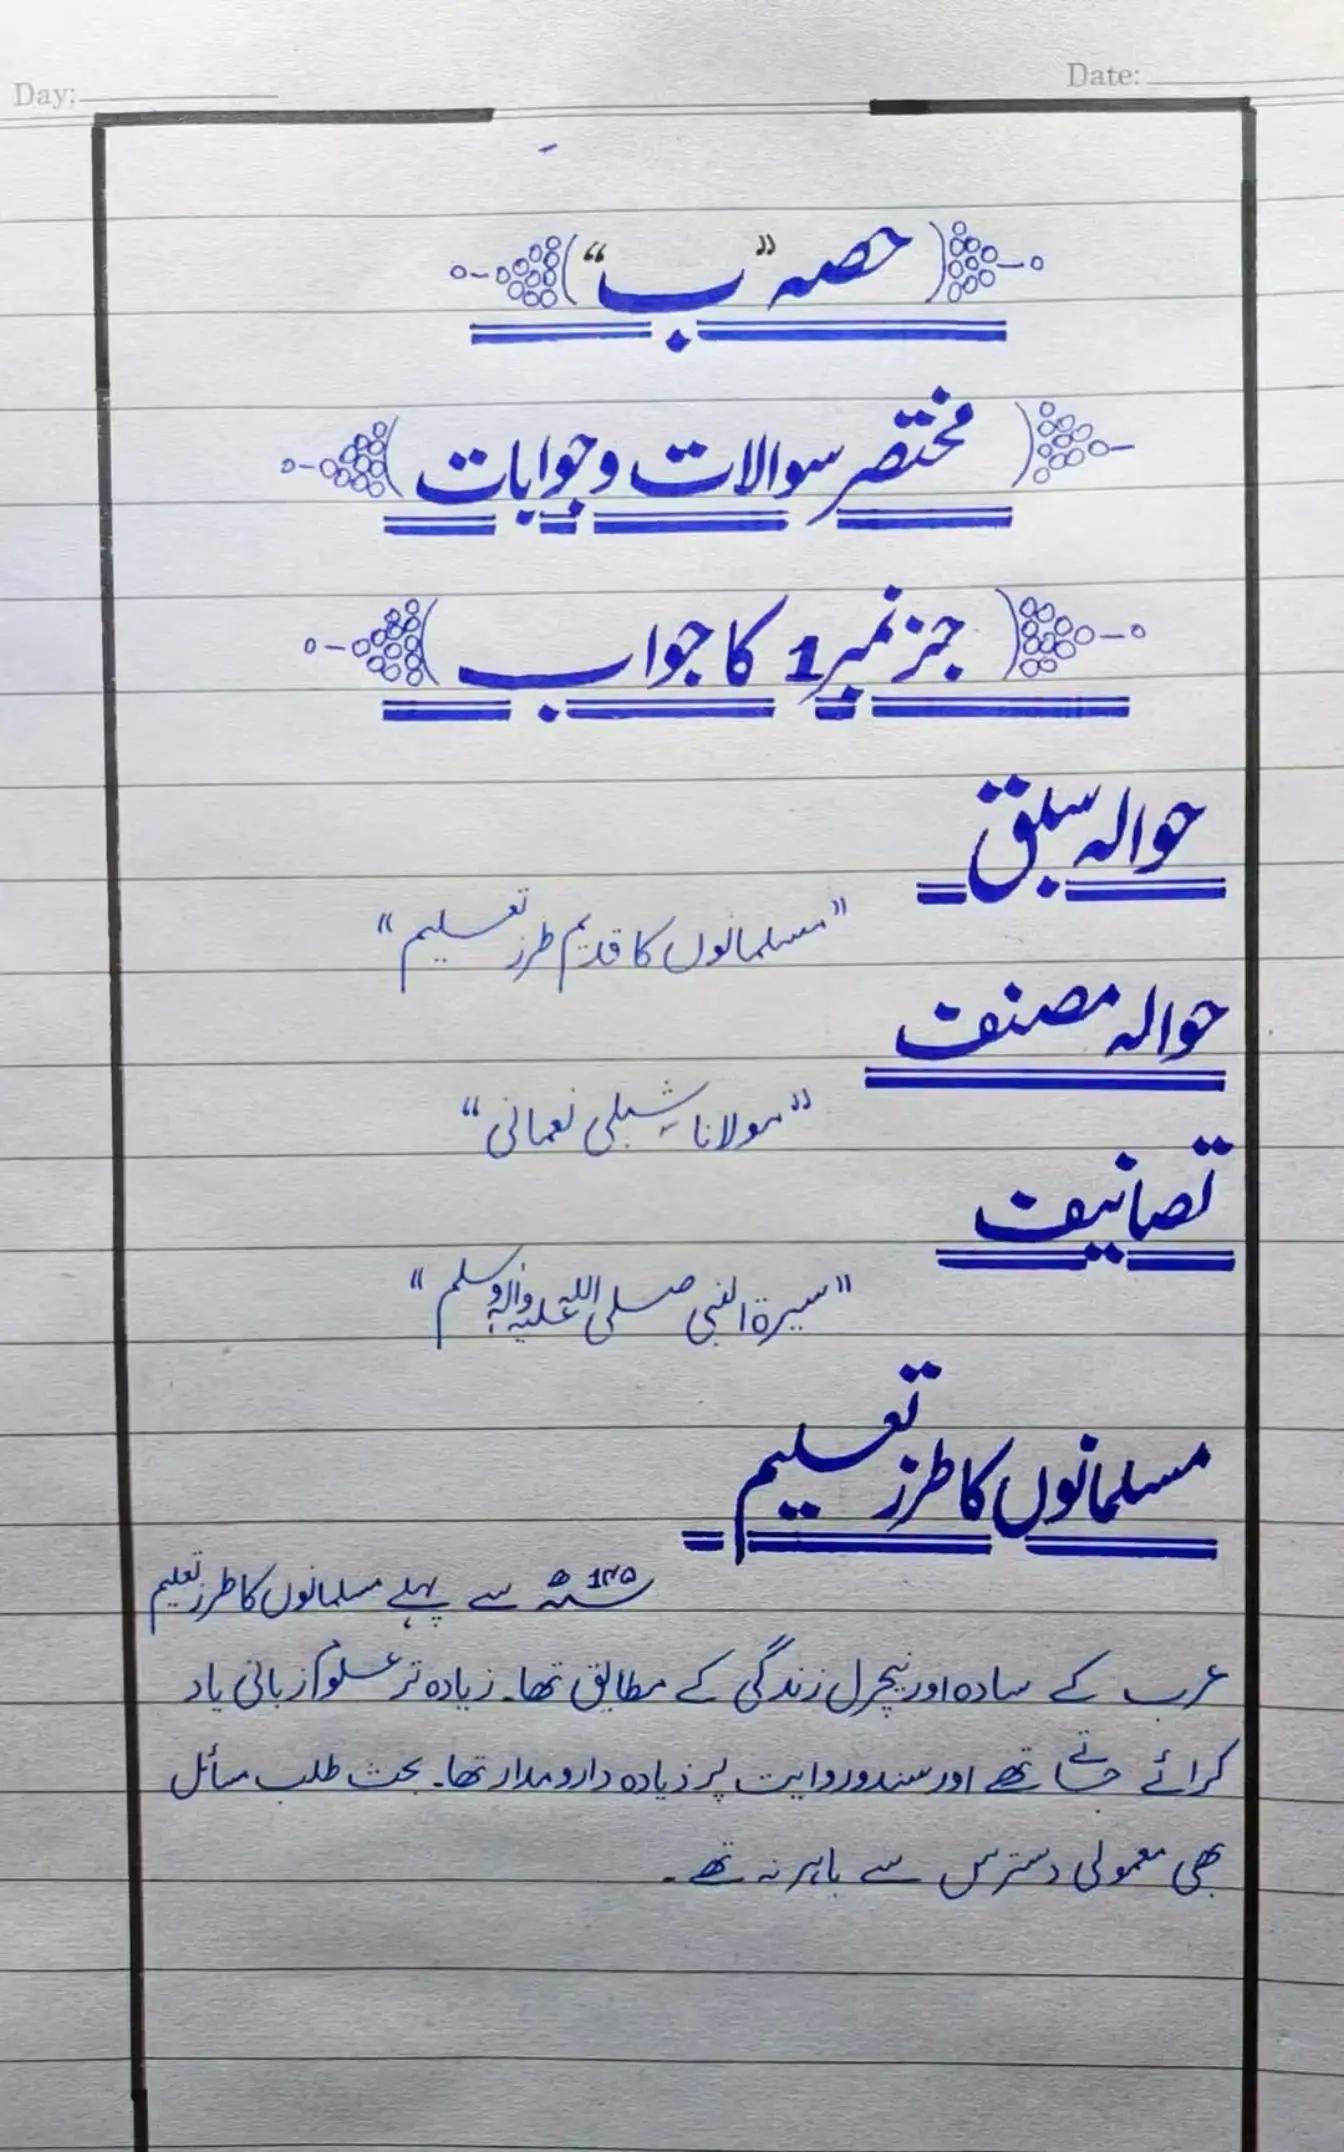 Day:
Date:
حصہ "ب"
مختصر سوالات و جوابات
جز نمبر 1 کا جواب
حوالہ سبق
"مسلمانوں کا قدیم طرز تعلیم"
حوالہ مصنف
"مولانا شبلی نعمانی"
تصانیف
"سیرۃ النبی صلی اللہ علیہ وآلہ وسلم"
مسلمانوں کا طرز تعلیم
سے پہلے مسلمانوں کا طرز تعلیم
عرب کے سادہ اور نیچرل زندگی کے مطابق تھا۔ زیادہ تر علوم زبانی یاد
کرائے جاتے تھے اور سند و روایت پر زیادہ دارومدار تھا۔ بحث طلب مسائل
بھی معمولی دسترس سے باہر نہ تھے۔